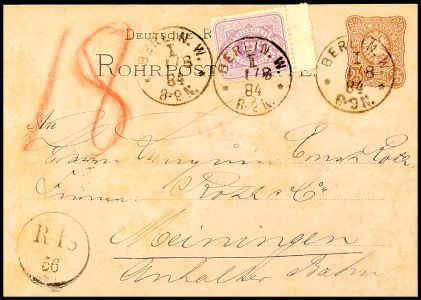 DEUTSCHE R
ROHRPOST E.
BERLIN. W.
I
1/8
84
8-9N.
BERLIN. W.
I
1/8
84
8-9N.
BERLIN. W.
I
1/8
84
8-9N.
25 25
18
An
Herrn Ernst
Firma & Co
Meiningen
Anhalter Bahn
R 18
56